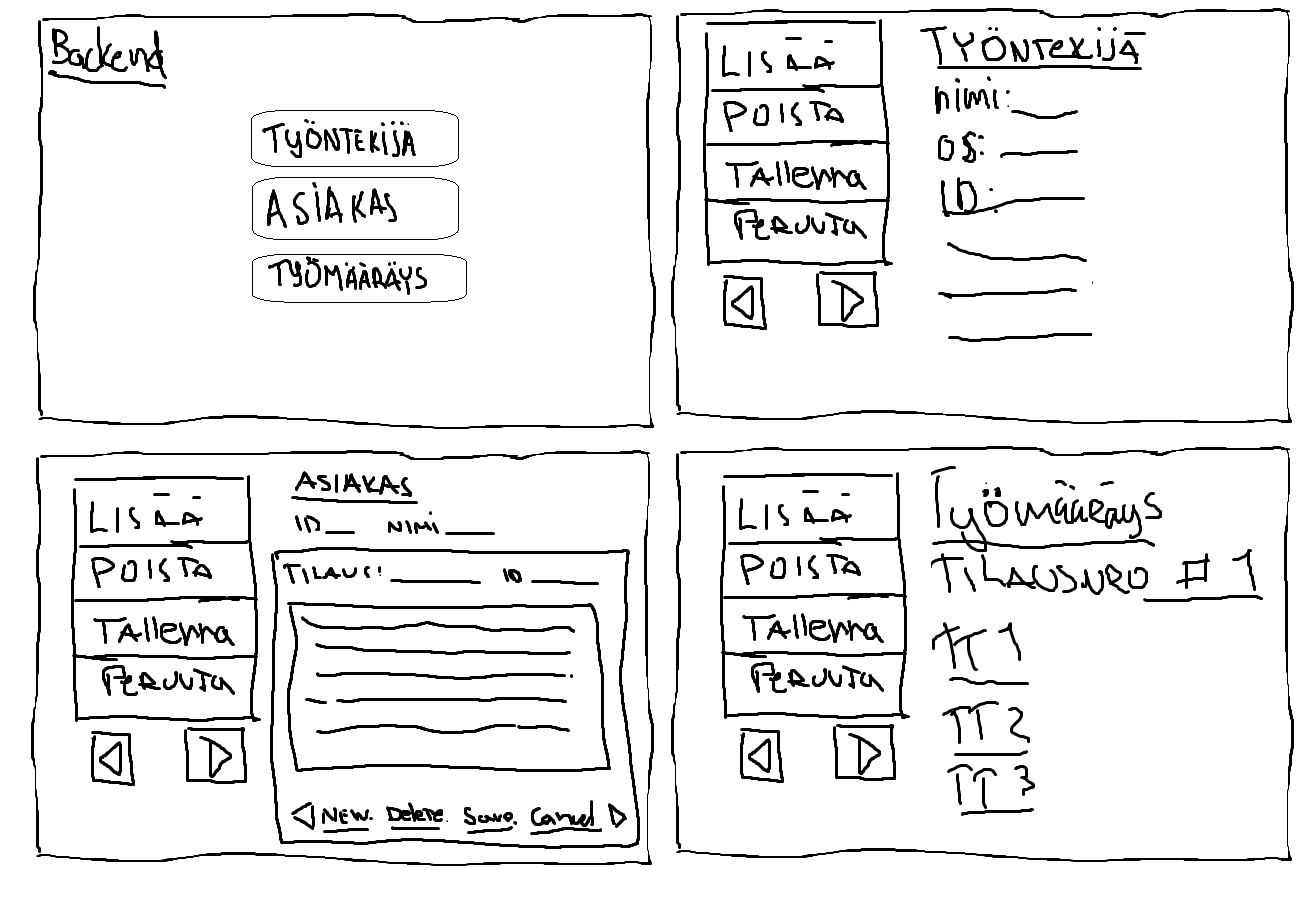 Backend
TYÖNTEKIJÄ
ASIAKAS
TYÖMÄÄRÄYS
LISÄÄ
POISTA
TAllenna
PERUUTA
TYÖNTEKIJÄ
nimi:
OS:
ID:
LISÄÄ
POISTA
TAllenna
PERUUTA
ASIAKAS
ID NIMI
TILAUS: ID
NEW. Delete. Save. Cancel
LISÄÄ
POISTA
TAllenna
PERUUTA
Työmääräys
TILAUSNRO # 1
TT 1
TT 2
TT 3